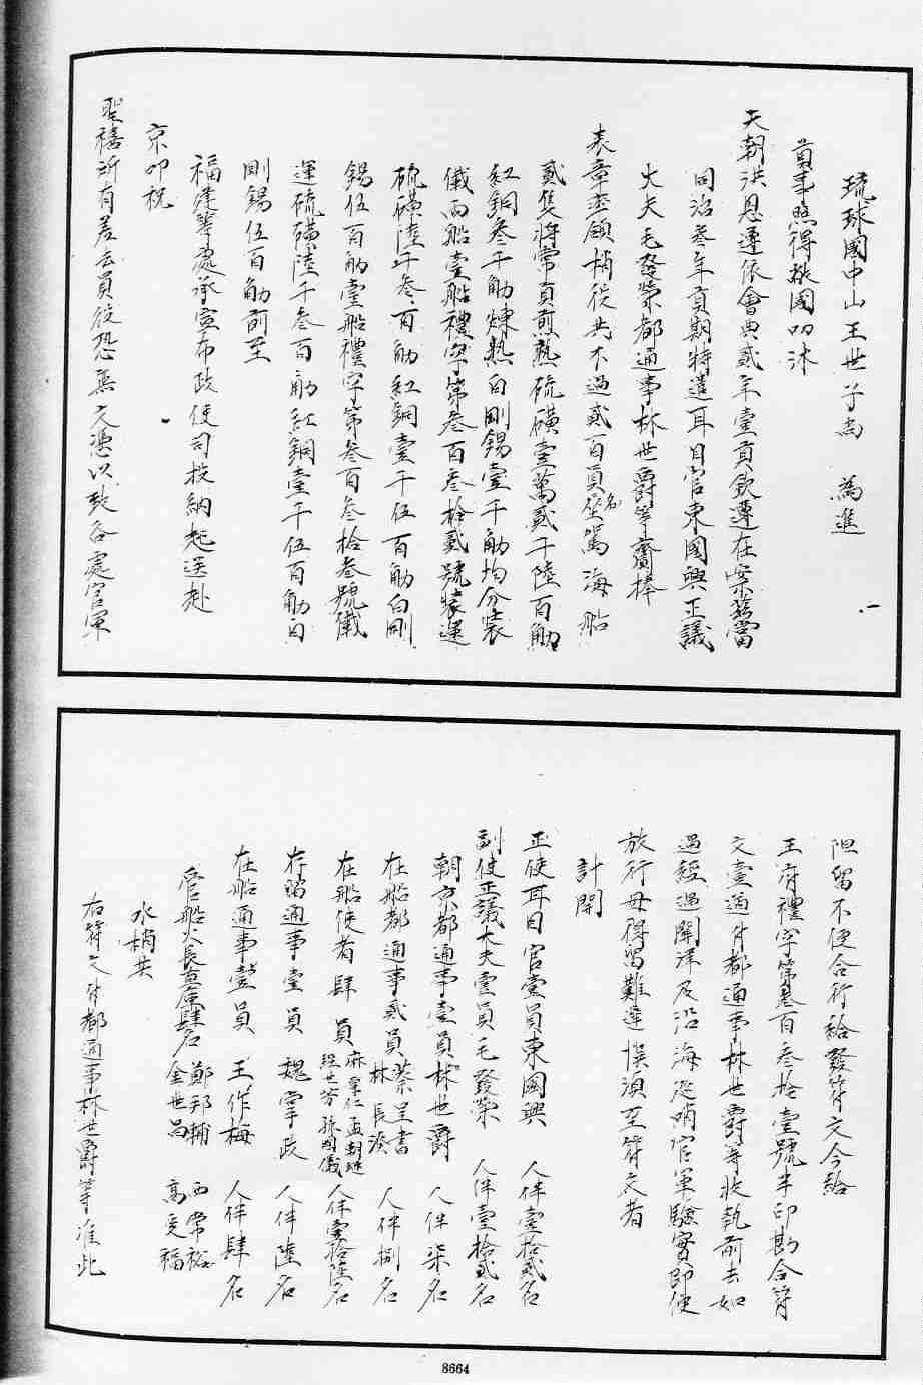 琉球國中山王世子尚　為進
貢事照得敝國叨沐
天朝洪恩遵依會典貳年壹貢欽遵在案茲當
同治叁年貢期特遣耳目官東國興正議
大夫毛發榮都通事林世爵等齎捧
表章率領梢役共不過貳百員名坐駕海船
貳隻將常貢煎熟硫磺壹萬貳千陸百觔
紅銅叁千觔煉熟白剛錫壹千觔均分裝
儎兩船壹船禮字第叁百叁拾貳號裝運
硫磺陸千叁百觔紅銅壹千伍百觔白剛
錫伍百觔壹船禮字第叁百叁拾叁號儎
運硫磺陸千叁百觔紅銅壹千伍百觔白
剛錫伍百觔前至
福建等處承宣布政使司投納起送赴
京叩祝
聖禧所有差去員役恐無文憑以致各處官軍
阻留不便合行給發符文今給
王府禮字第叁百叁拾壹號半印勘合符
文壹道付都通事林世爵等收執前去如
遇經過關津及沿海巡哨官軍驗實即便
放行毋得留難遲悞須至符文者
計開
正使耳目官壹員東國興　人伴壹拾貳名
副使正議大夫壹員毛發榮　人伴壹拾貳名
朝京都通事壹員林世爵　人伴柒名
在船都通事貳員蔡呈書林長　人伴捌名
在船使者肆員麻　仁孟朝　程世芳孫國儀人伴壹拾陸名
存留通事壹員　魏掌政　人伴陸名
在船通事壹員　王作梅　人伴肆名
管船火長直庫肆名　鄭邦輔金世昌　西常裕高受福
水梢共
右符文付都通事林世爵等准此
8664